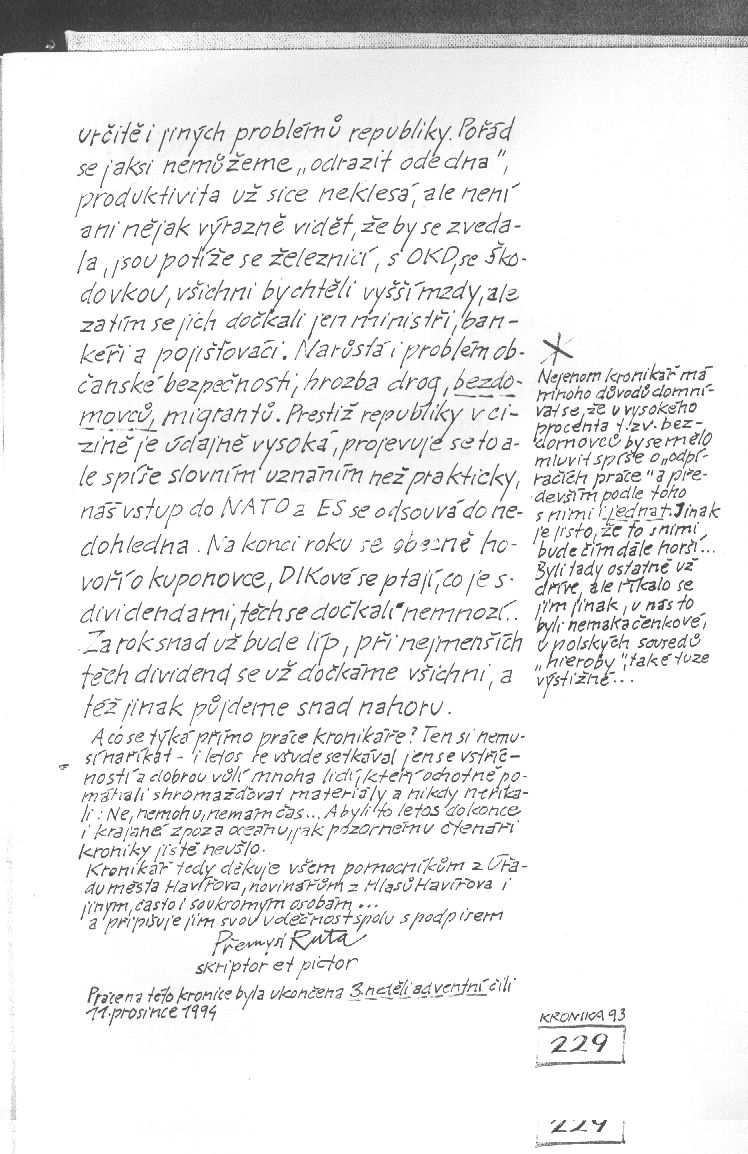 určitě i jiných problémů republiky. Pořád
se jaksi nemůžeme „odrazit ode dna",
produktivita už sice neklesá, ale není
ani nějak výrazně vidět, že by se zveda-
la, jsou potíže se železnicí, s OKD, se Ško-
dovkou, všichni by chtěli vyšší mzdy, ale
zatím se jich dočkali jen ministři, ban-
kéři a pojišťovači. Narůstá i problém ob-
čanské bezpečnosti, hrozba drog, bezdo-
movců, migrantů. Prestiž republiky v ci-
zině je údajně vysoká, projevuje se to a-
le spíše slovním uznáním než prakticky,
náš vstup do NATO a ES se odsouvá do ne-
dohledna. Na konci roku se obecně ho-
voří o kuponovce, DIKové se ptají, co je s
dividendami, těch se dočkali nemnozí..
Za rok snad už bude líp, při nejmenších
těch dividend se už dočkáme všichni, a
též jinak půjdeme snad nahoru.
A co se týká přímo práce kronikáře? Ten si nemu-
sí naříkat - i letos se všude setkával jen se vstříc-
ností a dobrou vůlí mnoha lidí, kteří ochotně po-
máhali shromažďovat materiály a nikdy neříka-
li: Ne, nemohu, nemám čas... A byli to letos dokonce
i krajané zpoza oceánu, jak pozornému čtenáři
kroniky jistě neušlo.
Kronikář tedy děkuje všem pomocníkům z Úřa-
du města Havířova, novinářům z Hlasů Havířova i
jiným, často i soukromým osobám...
a připisuje jim svou vděčnost spolu s podpisem
Přemysl Ruta
skriptor et pictor
Práce na této kronice byla ukončena 3. neděli adventní čili
11. prosince 1994
Nejenom kronikář má
mnoho důvodů domní-
vat se, že u vysokého
procenta t. zv. bez-
domovců by se mělo
mluvit spíše o „odpí-
račích práce" a pře-
devším podle toho
s nimi i jednat. Jinak
je jisto, že to s nimi
bude čím dále horší...
Byli tady ostatně už
dříve, ale říkalo se
jim jinak, u nás to
byli nemakačenkové,
u polských sousedů
„hieroby", také tuze
výstižné...
KRONIKA 93
229
229